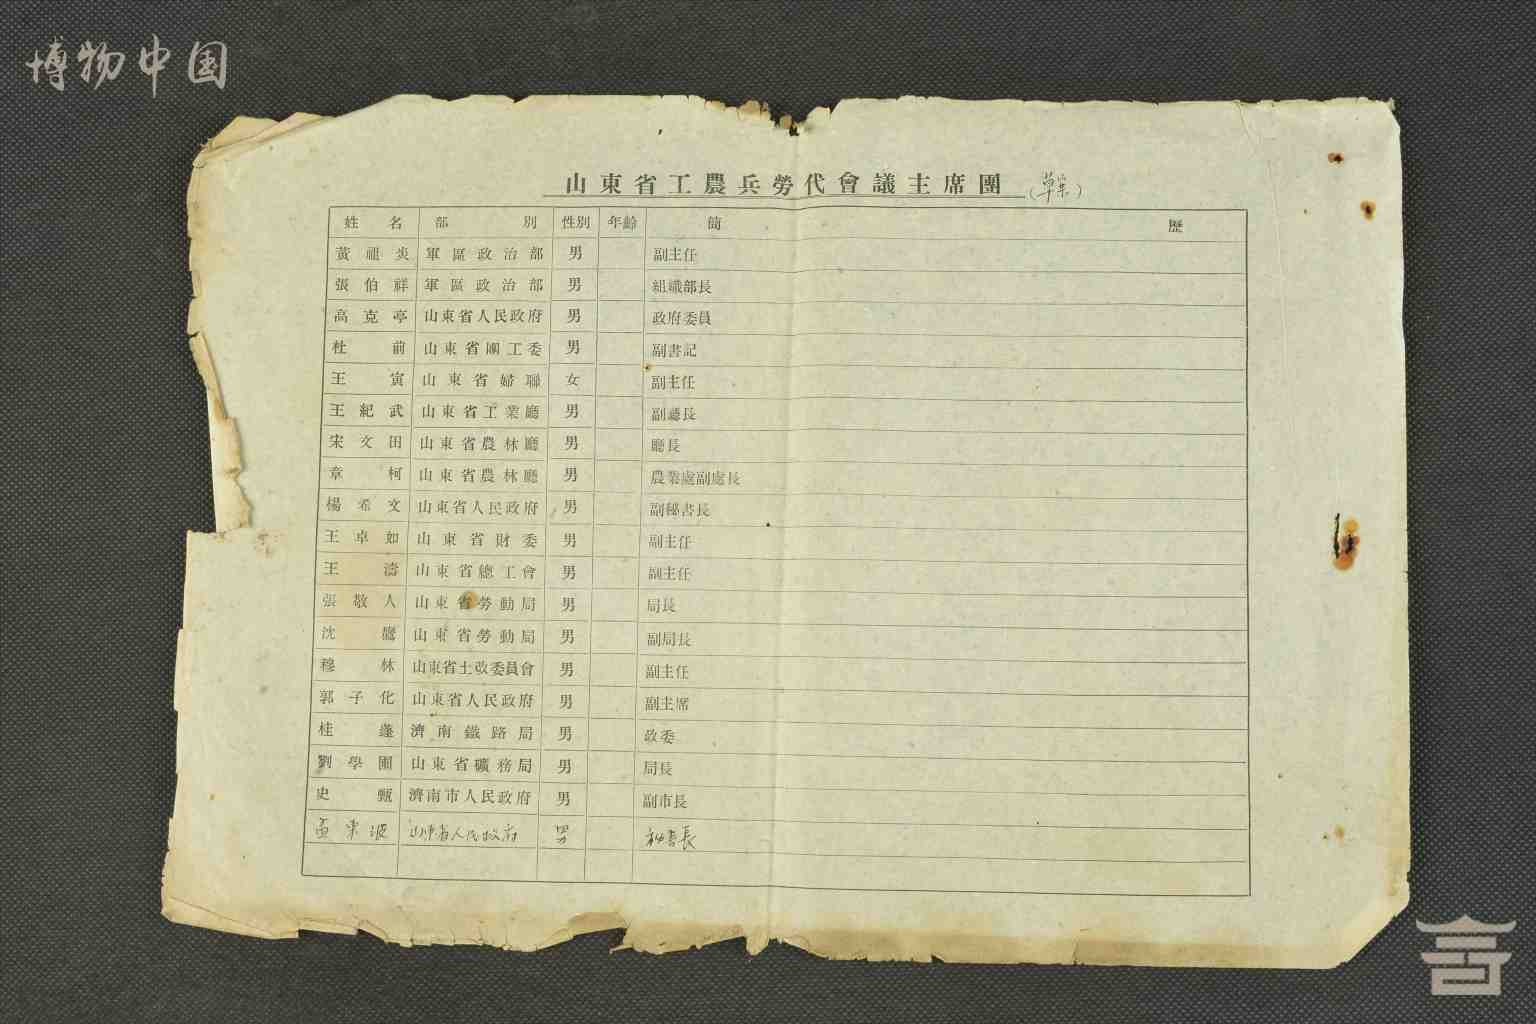 博物中国
山東省工農兵勞代會議主席團(草案)
姓名 部別 性別 年齡 簡歷
黃祖炎 軍區政治部 男 副主任
張伯祥 軍區政治部 男 組織部長
高克亭 山東省人民政府 男 政府委員
杜前 山東省團工委 男 副書記
王寅 山東省婦聯 女 副主任
王紀武 山東省工業廳 男 副廳長
宋文田 山東省農林廳 男 廳長
章柯 山東省農林廳 男 農業處副處長
楊希文 山東省人民政府 男 副秘書長
王卓如 山東省財委 男 副主任
王濤 山東省總工會 男 副主任
張敬人 山東省勞動局 男 局長
沈鷹 山東省勞動局 男 副局長
穆林 山東省土改委員會 男 副主任
郭子化 山東省人民政府 男 副主席
桂蓬 濟南鐵路局 男 政委
劉學圃 山東省礦務局 男 局長
史甄 濟南市人民政府 男 副市長
孟東波 山東省人民政府 男 秘書長